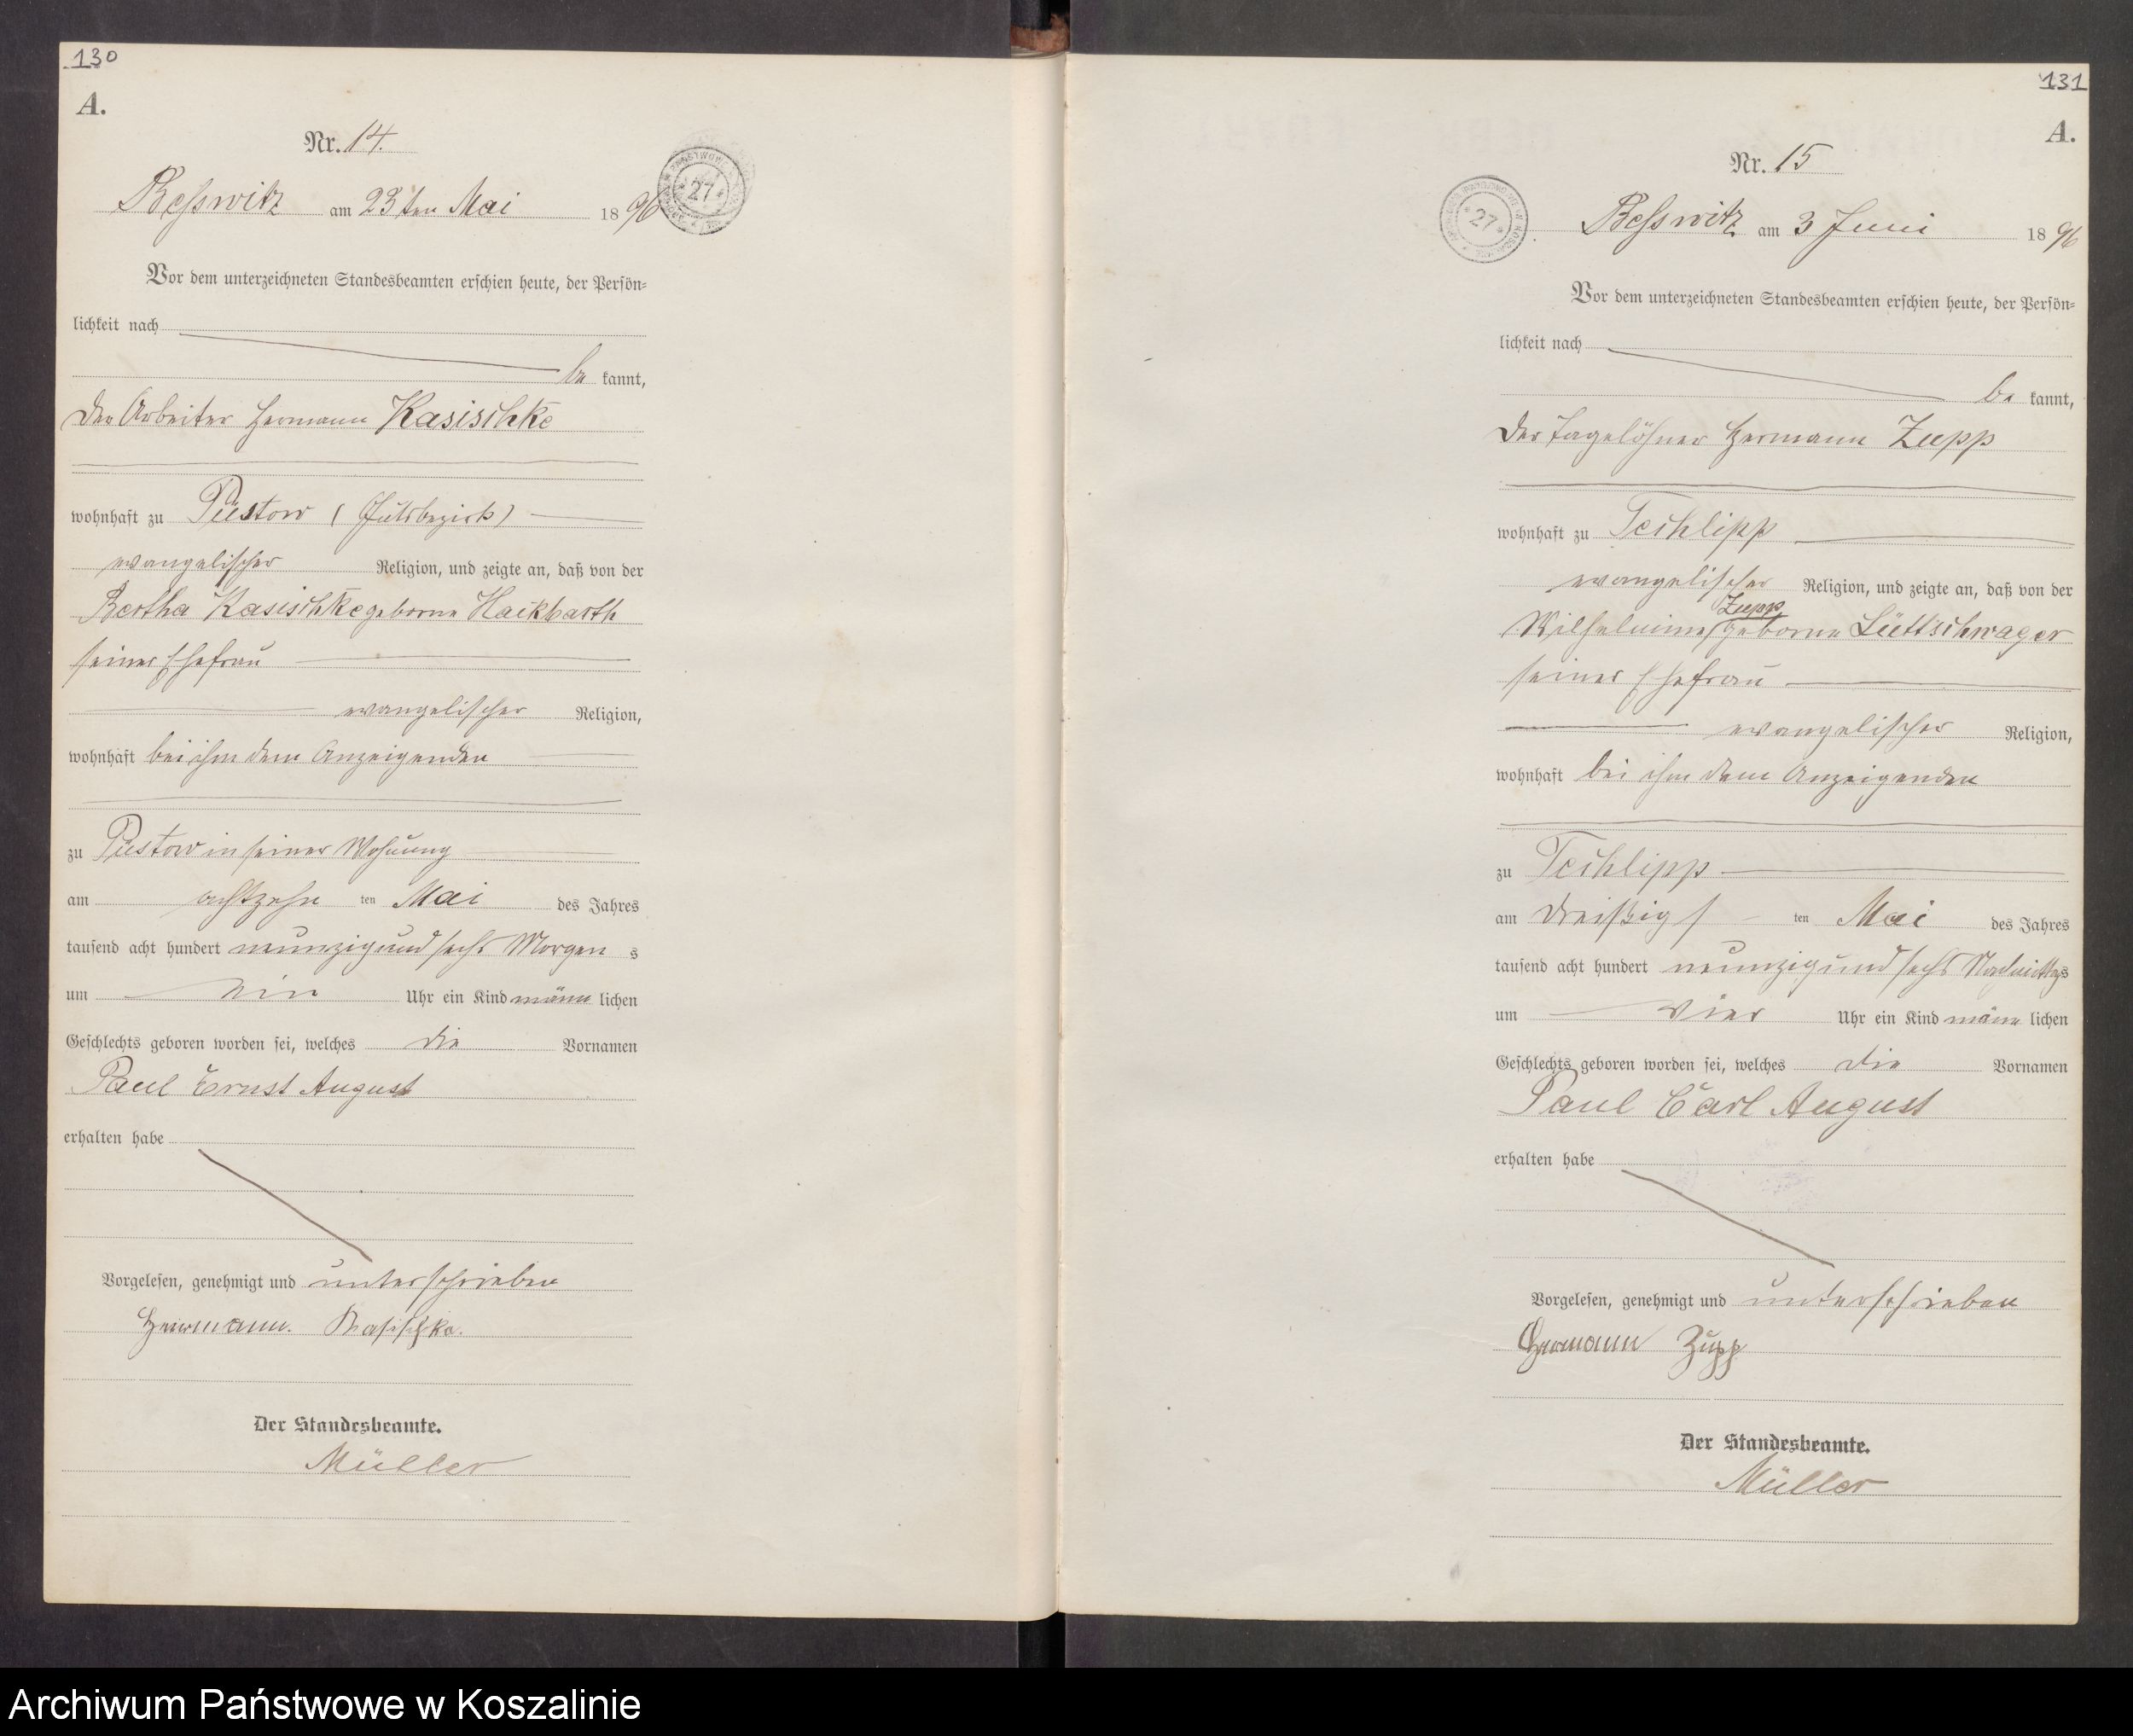 130
A.
Nr. 14.
Besswitz am 23ten Mai 1896
27
Vor dem unterzeichneten Standesbeamten erschien heute, der Persön=
lichkeit nach
be kannt,
der Arbeiter Hermann Kasischke
wohnhaft zu Püstow (Gutsbezirk)
evangelischer Religion, und zeigte an, daß von der
Bertha Kasischke geborne Hackbarth
seiner Ehefrau
evangelischer Religion,
wohnhaft bei ihm dem Anzeigenden
zu Püstow in seiner Wohnung
am achtzehn ten Mai des Jahres
tausend acht hundert neunzig und sechs Morgen s
um ein Uhr ein Kind männ lichen
Geschlechts geboren worden sei, welches die Vornamen
Paul Ernst August
erhalten habe
Vorgelesen, genehmigt und unterschrieben
Hermann. Kasischke.
Der Standesbeamte.
Müller
131
A.
Nr. 15
Besswitz am 3 Juni 1896
27
Vor dem unterzeichneten Standesbeamten erschien heute, der Persön=
lichkeit nach
be kannt,
der Tagelöhner Hermann Zupp
wohnhaft zu Techlipp
evangelischer Religion, und zeigte an, daß von der
Zupp
Wilhelmine geborne Lüttschwager
seiner Ehefrau
evangelischer Religion,
wohnhaft bei ihm dem Anzeigenden
zu Techlipp
am dreißigs ten Mai des Jahres
tausend acht hundert neunzig und sechs Nachmittags
um vier Uhr ein Kind männ lichen
Geschlechts geboren worden sei, welches die Vornamen
Paul Carl August
erhalten habe
Vorgelesen, genehmigt und unterschrieben
Hermann Zupp
Der Standesbeamte.
Müller
Archiwum Państwowe w Koszalinie